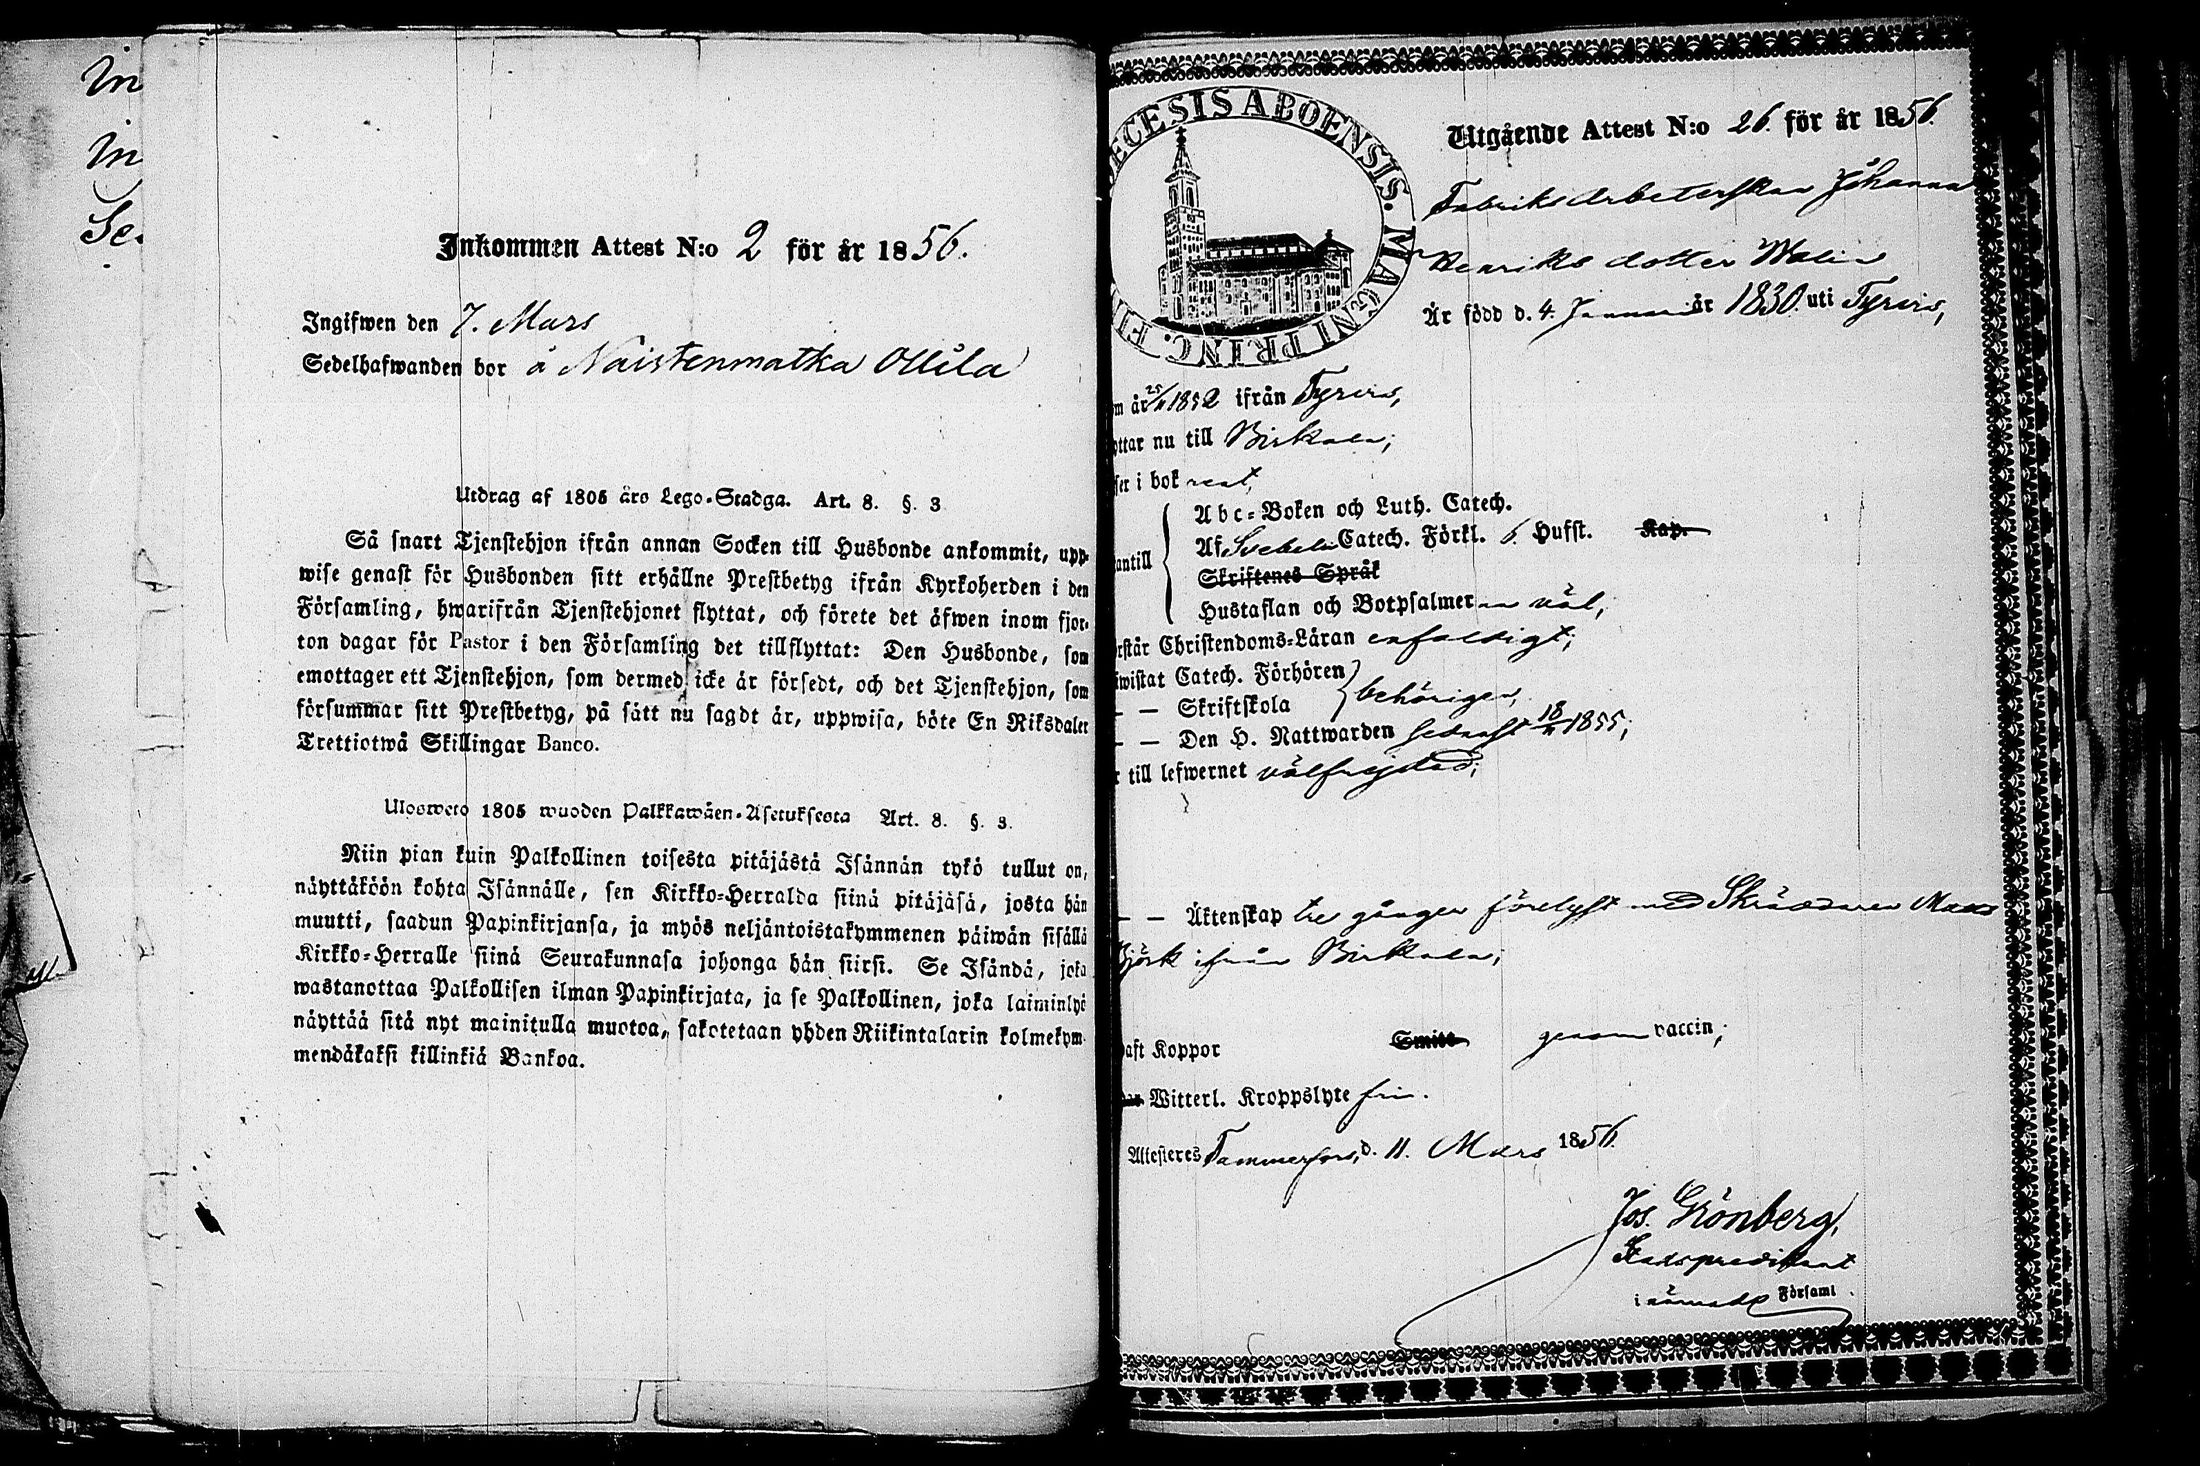 In
in
Se
Inkommen Attest N:o 2 för år 1856.
Ingifwen den 7. Mars
Sedelhafwanden bor å Naistenmatka Ollila
Utdrag af 1805 års Lego-Stadga. Art. 8. §. 3
Så snart Tjenstehjon ifrån annan Socken till Husbonde ankommit, upp-
wise genast för Husbonden sitt erhållne Prestbetyg ifrån Kyrkoherden i den
Församling, hwarifrån Tjenstehjonet flyttat, och förete det äfwen inom fjor-
ton dagar för Pastor i den Församling det tillflyttat: Den Husbonde, som
emottager ett Tjenstehjon, som dermed icke är försedt, och det Tjenstehjon, som
försummar sitt Prestbetyg, på sätt nu sagdt är, uppwisa, böte En Riksdaler
Trettiotwå Skillingar Banco.
Ulosweto 1805 wuoden Palkkawäen-Asetuksesta Art. 8. §. 3.
Niin pian kuin Palkollinen toisesta pitäjästä Isännän tykö tullut on,
näyttäköön kohta Isännälle, sen Kirkko-Herralda siinä pitäjäsä, josta hän
muutti, saadun Papinkirjansa, ja myös neljäntoistakymmenen päiwän sisällä
Kirkko-Herralle siinä Seurakunnasa johonga hän siirsi. Se Isändä, joka
wastanottaa Palkollisen ilman Papinkirjata, ja se Palkollinen, joka laiminlyö
näyttää sitä nyt mainitulla muotoa, sakotetaan yhden Riikintalarin kolmekym-
mendäkaksi killinkiä Bankoa.
ECESIS ABOENSIS. MAGNI PRINC. FI
Utgående Attest N:o 26. för år 1856.
Fabriks Arbeterskan Johanna
Henriks dotter Walin
Är född d. 4 Januari år 1830. uti Tyrvis,
m år 25/11 1852 ifrån Tyrvis,
ottar nu till Birkala;
ser i bok rent,
antill
Abc-Boken och Luth. Catech.
Af Svebelii Catech. Förkl. 6. Hufst. Kap.
Skriftenes Språk
Hustaflan och Botpsalmerna väl,
rstår Christendoms-Läran enfaldigt;
iwistat Catech. Förhören
— — Skriftskola behörigen,
— — Den H. Nattwarden sednast 18/11 1855;
r till lefwernet välfrejdad;
— — Äktenskap tre gånger förelyst med Skräddaren Mats
Björk ifrån Birkala;
aft Koppor Smitt genom vaccin;
Witterl. Kroppslyte fri.
Attesteres Tammerfors, d. 11. Mars 1856.
Jos. Grönberg,
Stadspredikant
i nämnde Församl.